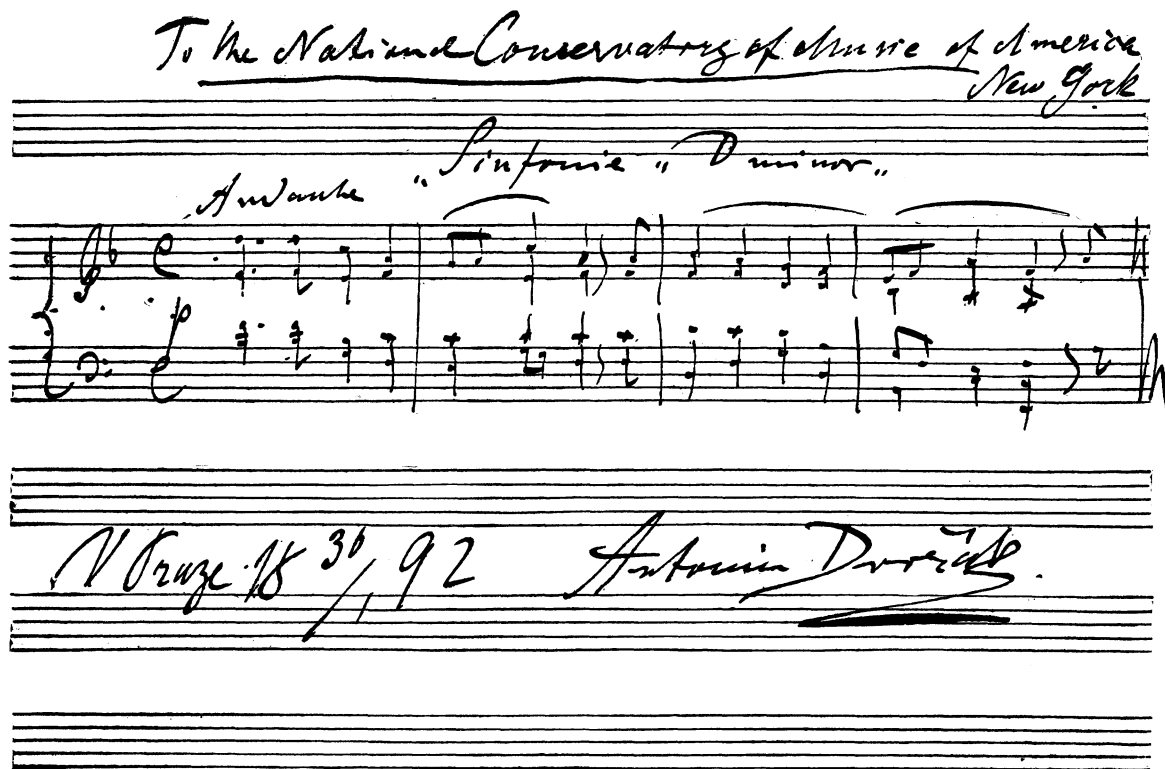 To the National Conservatory of Music of America
New York
"Sinfonie" D minor"
Andante
p
V Praze 18 30/1 92
Antonín Dvořák.